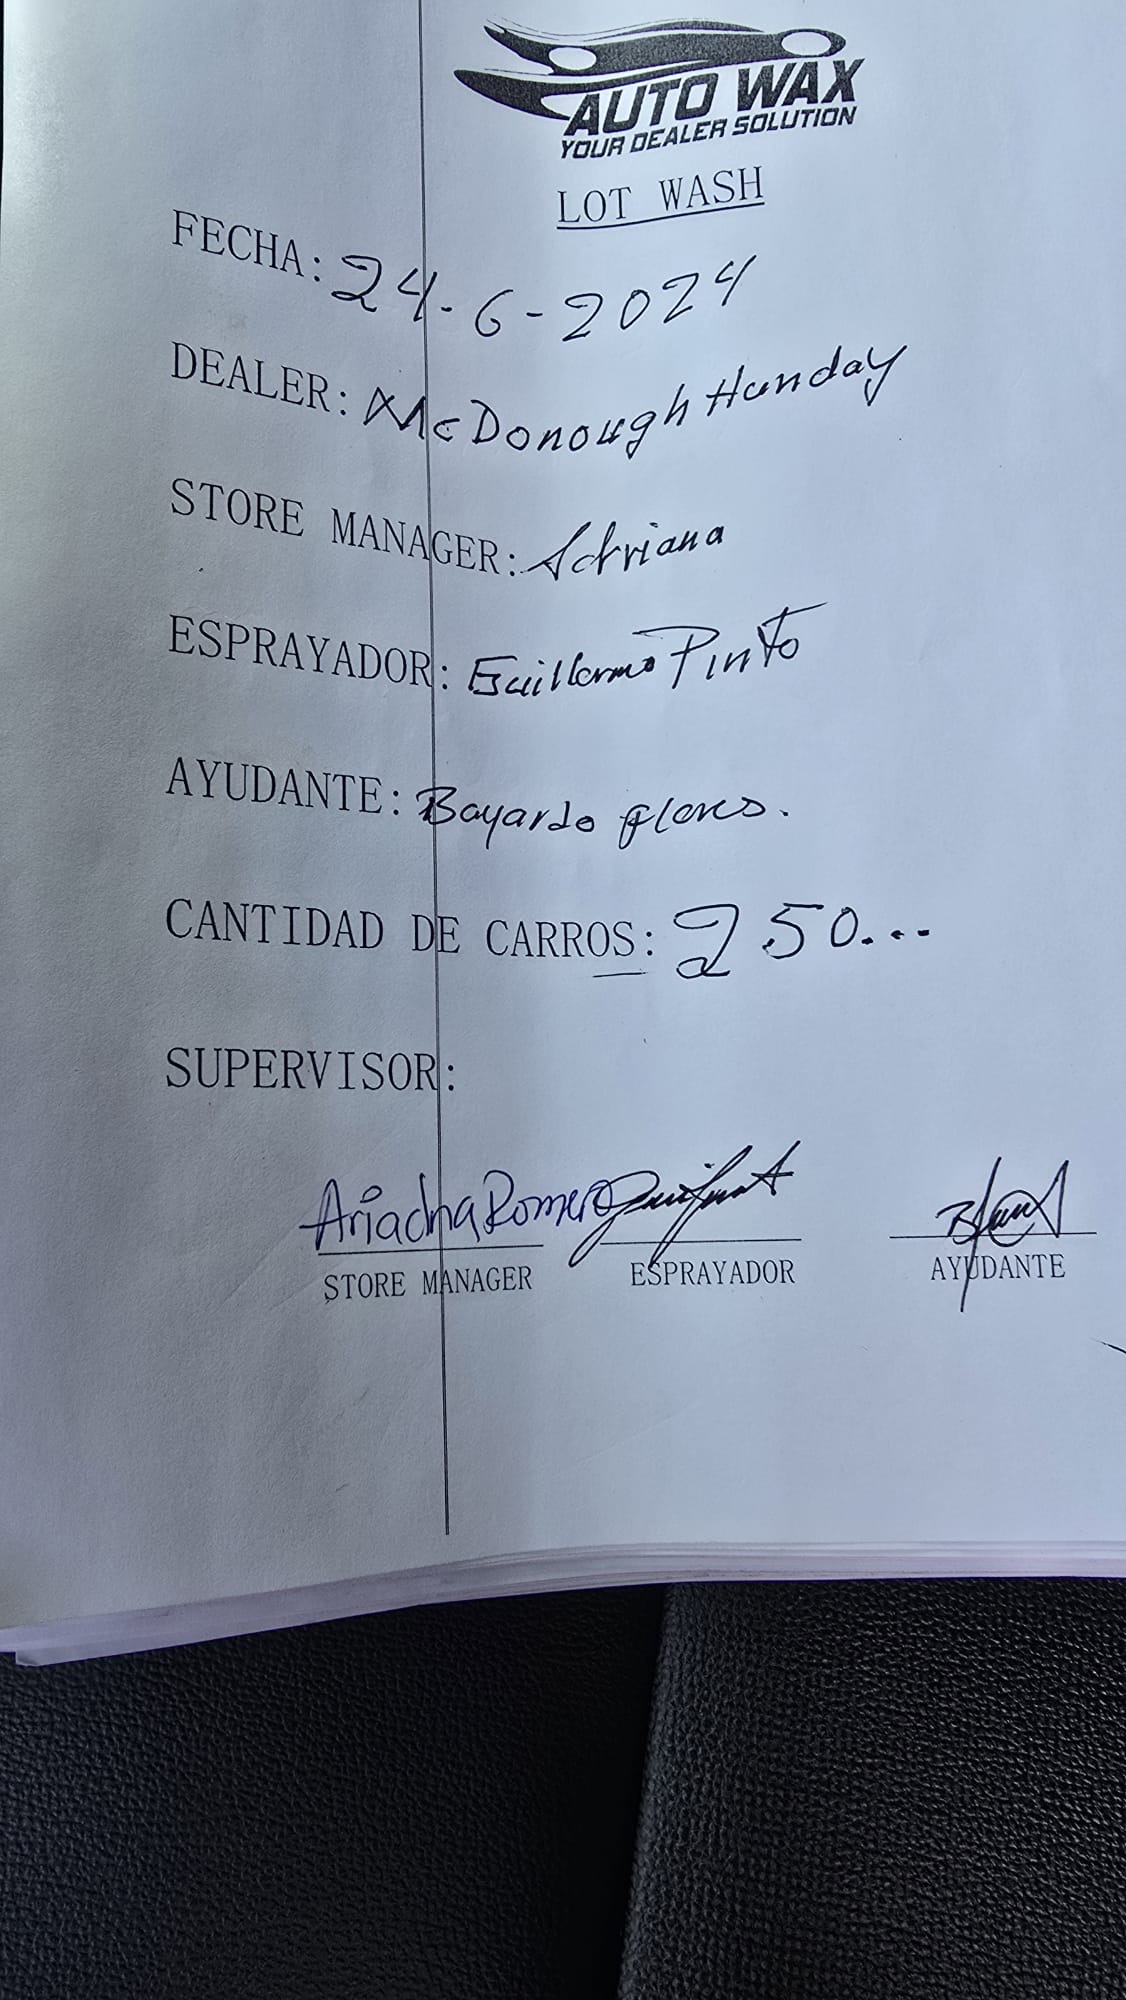 AUTO WAX
YOUR DEALER SOLUTION
LOT WASH
FECHA: 24-6-2024
DEALER: McDonough Hunday
STORE MANAGER: Adriana
ESPRAYADOR: Guillermo Pinto
AYUDANTE: Bayardo flores.
CANTIDAD DE CARROS: 250...
SUPERVISOR:
Ariadna Romero
STORE MANAGER ESPRAYADOR AYUDANTE